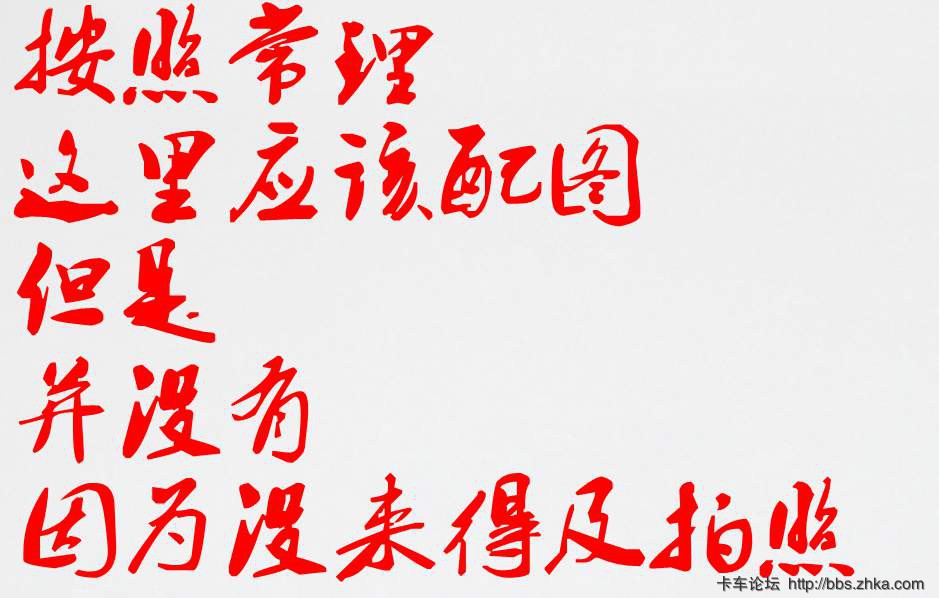 按照常理
这里应该配图
但是
并没有
因为没来得及拍照
卡车论坛 http://bbs.zhka.com